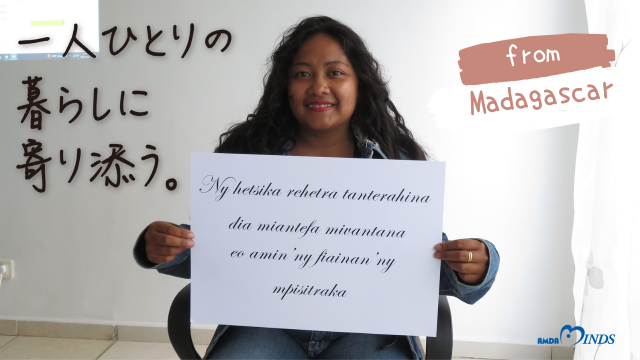 一人ひとりの
暮らしに
寄り添う。
from
Madagascar
Ny hetsika rehetra tanterahina
dia miantefa mivantana
eo amin'ny fiainan'ny
mpisitraka
AMDA MINDS